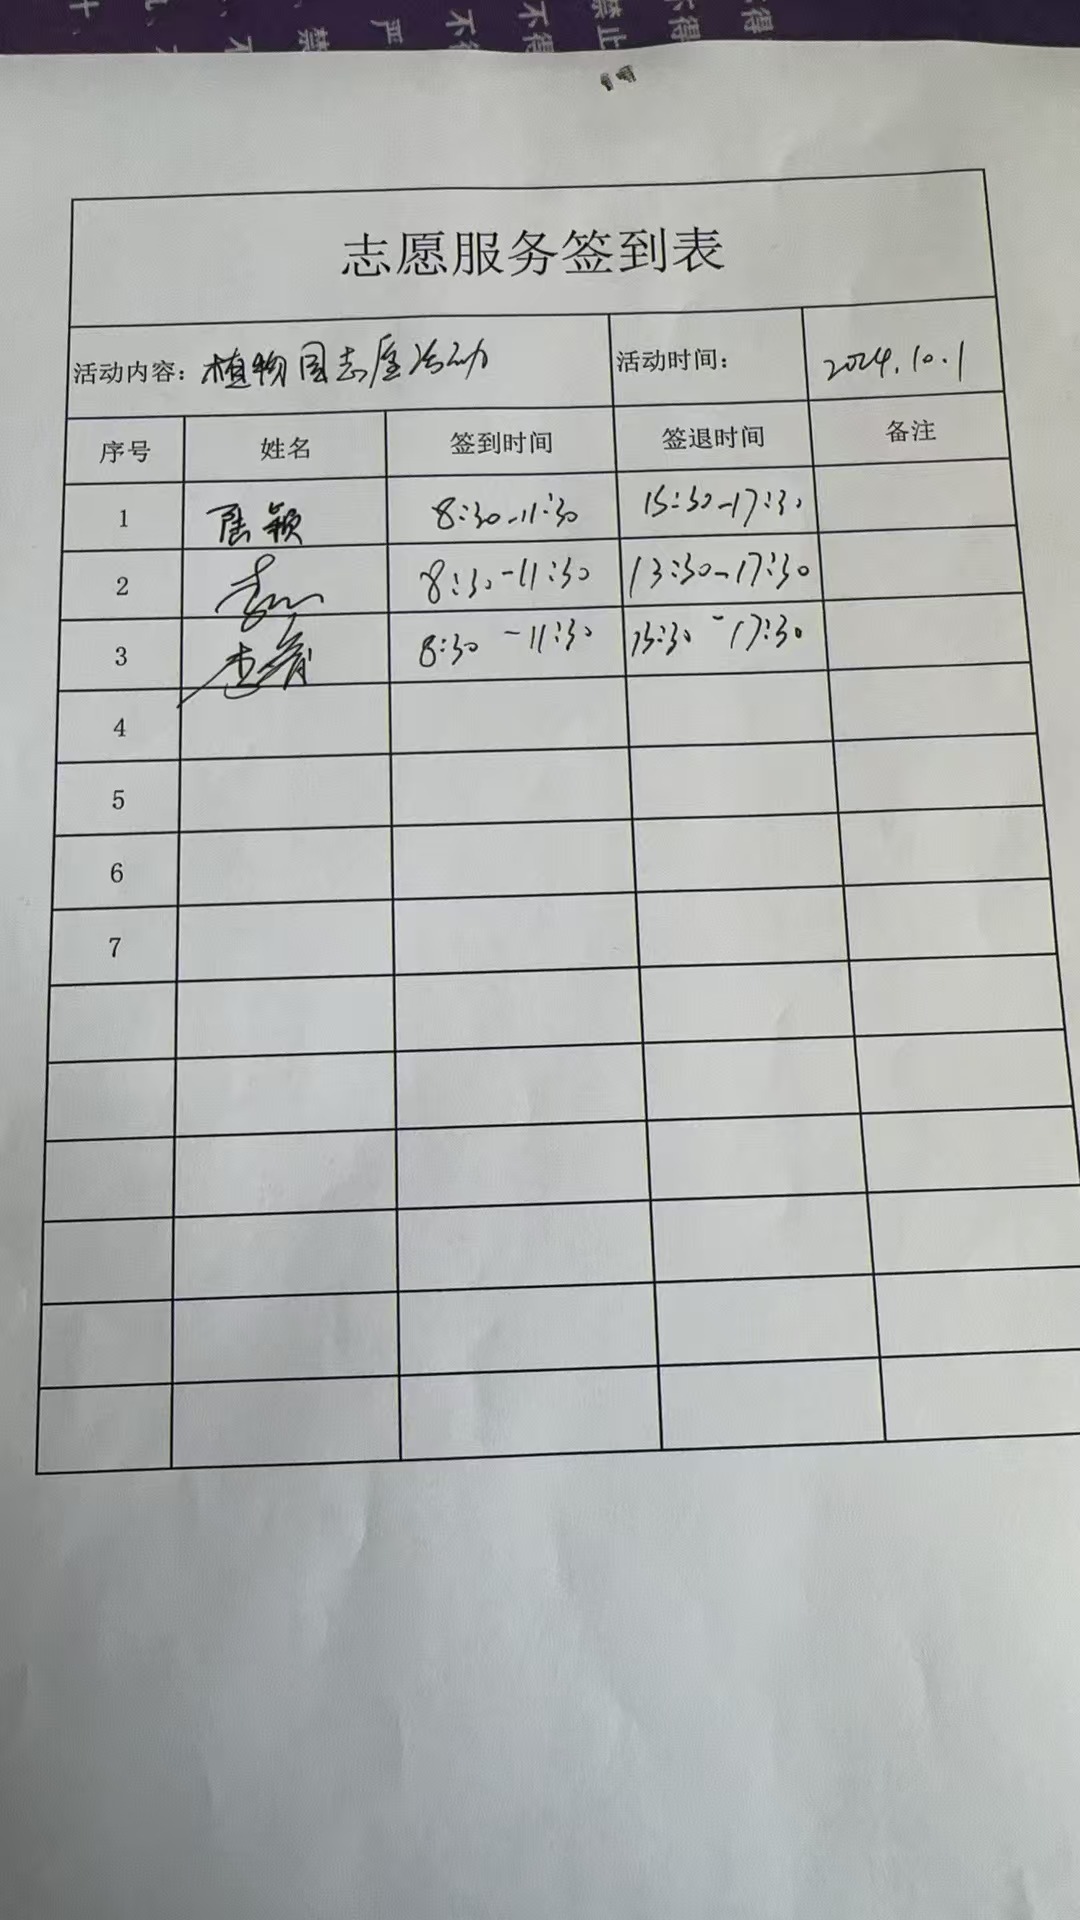 不 禁 严 不得 不得 禁止 不得 不得
志愿服务签到表
活动内容: 植物园志愿活动 活动时间: 2024.10.1
序号 姓名 签到时间 签退时间 备注
1 周颖 8:30-11:30 13:30-17:30
2 8:30-11:30 13:30-17:30
3 8:30-11:30 13:30-17:30
4
5
6
7